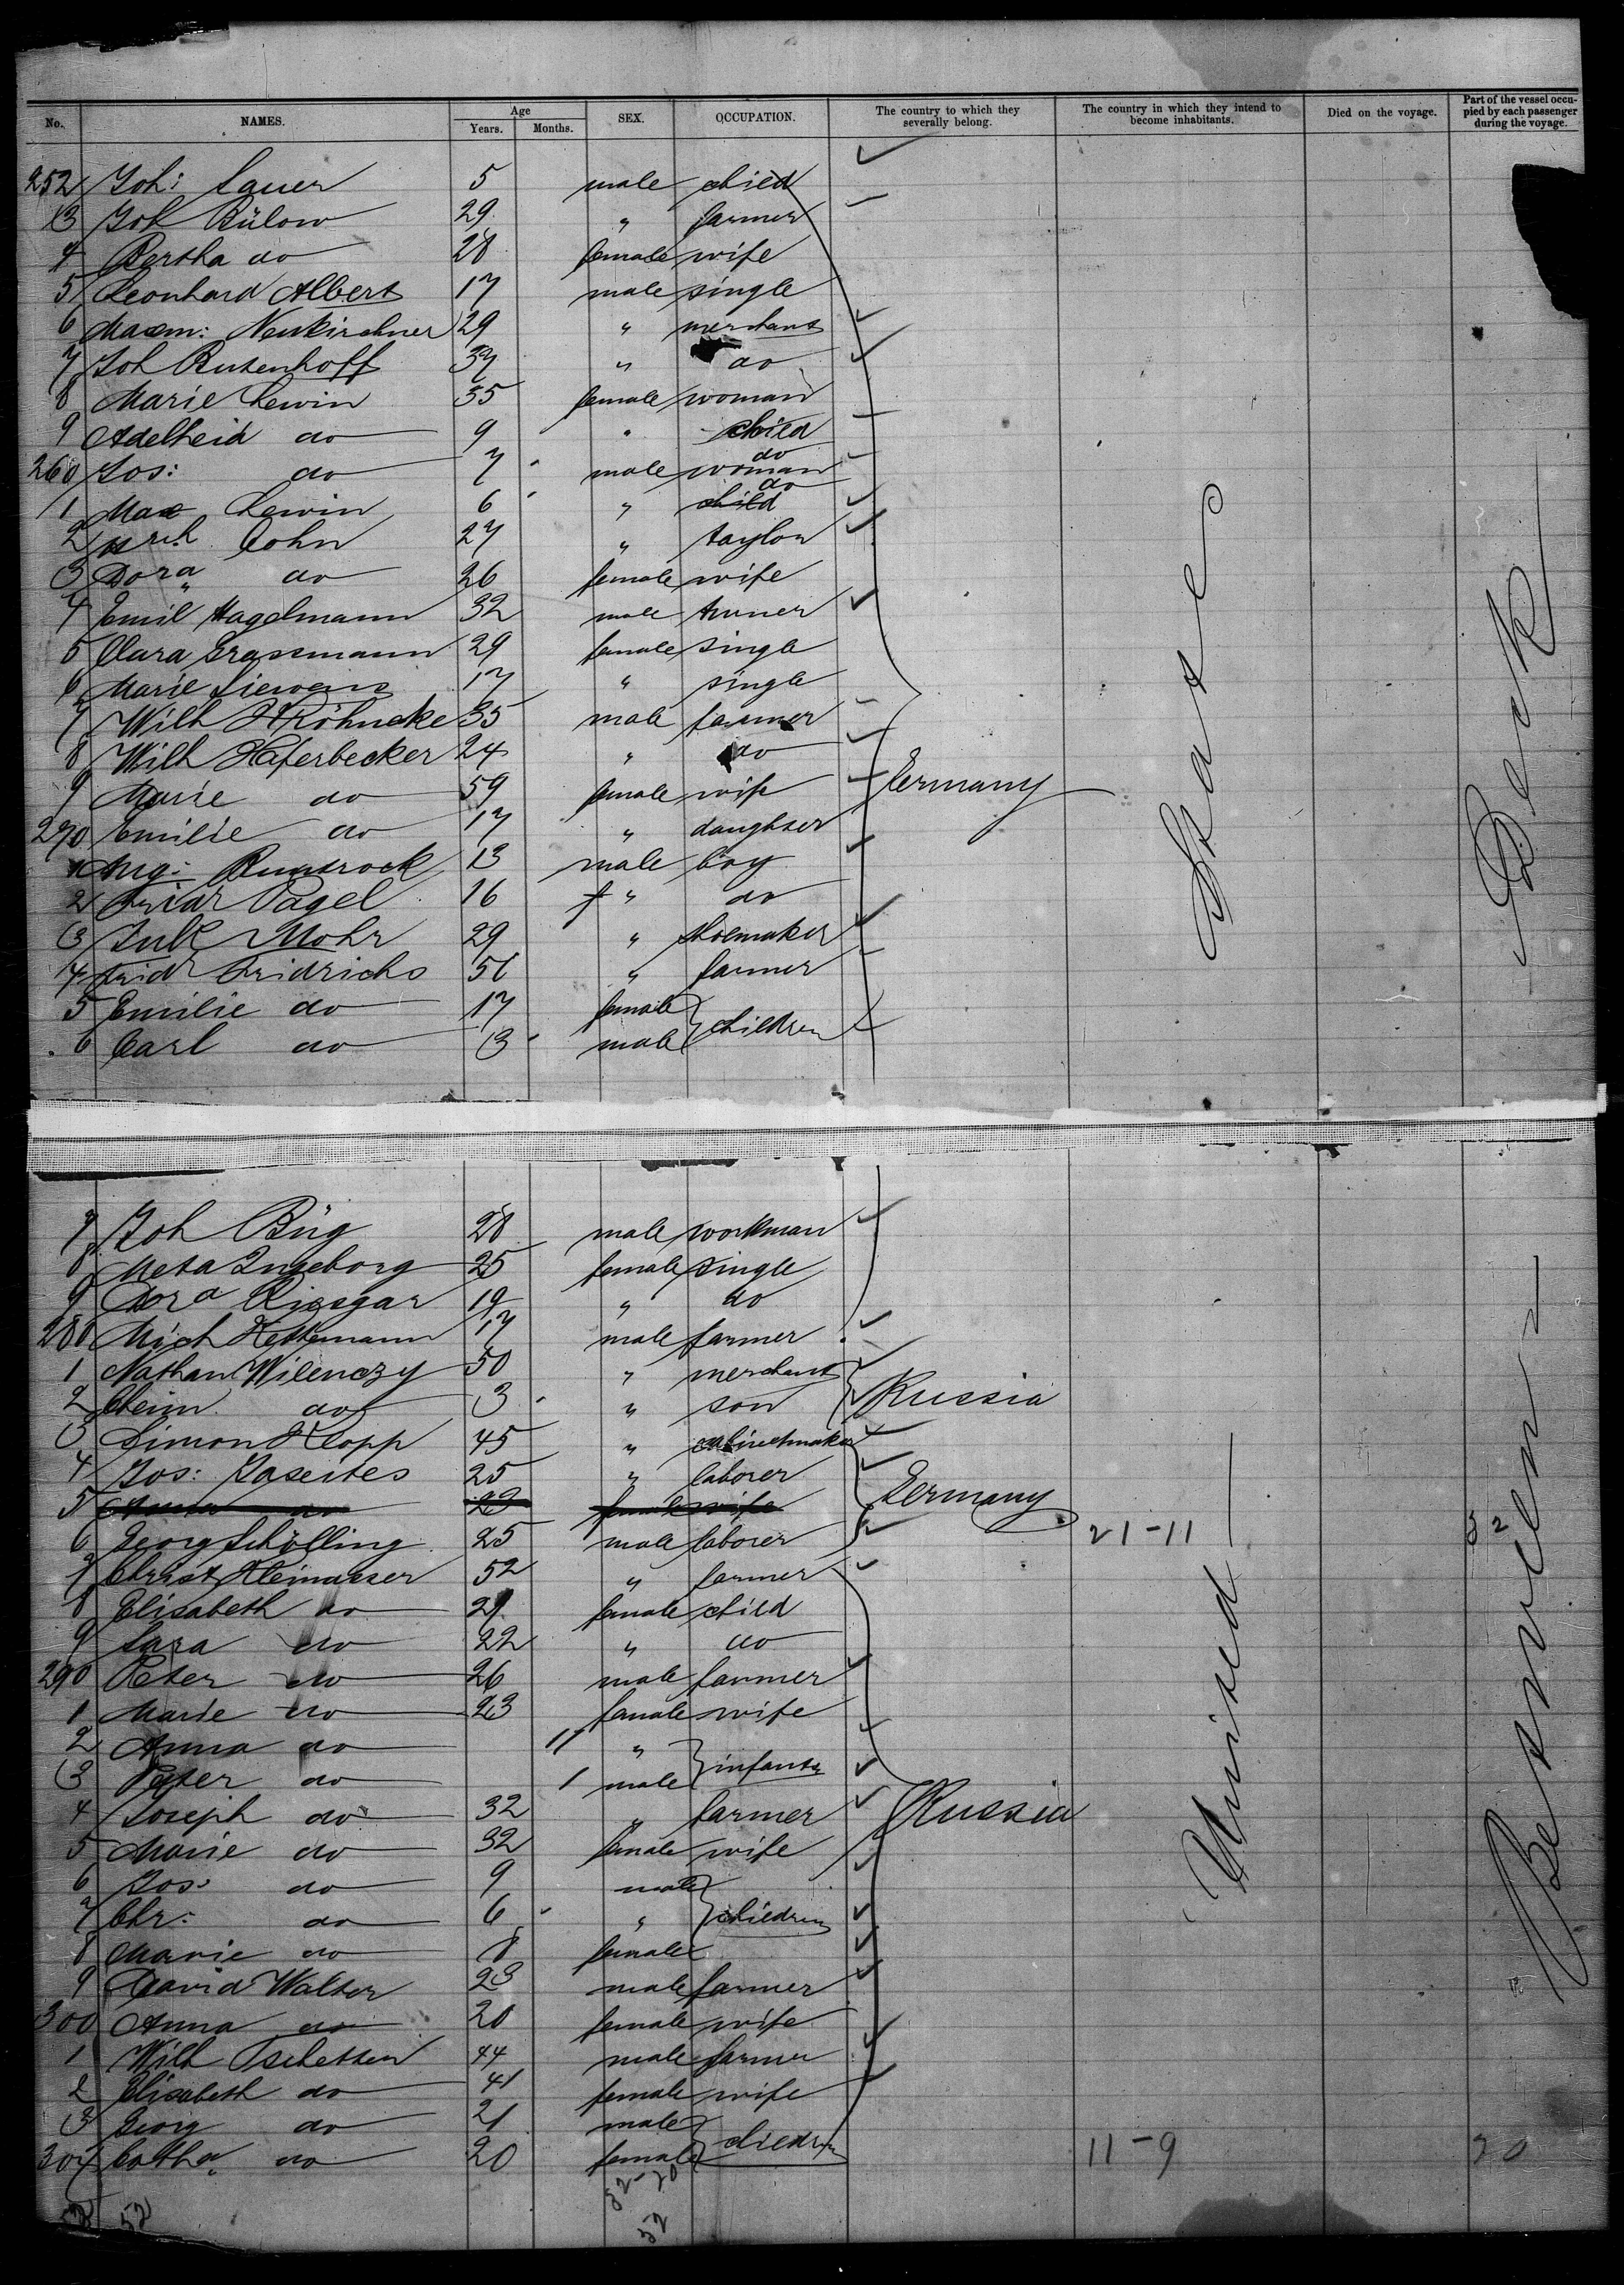 No. NAMES. Age Years. Months. SEX. OCCUPATION. The country to which they severally belong. The country in which they intend to become inhabitants. Died on the voyage. Part of the vessel occupied by each passenger during the voyage.
252 Joh: Sauer 5 male child
3 Joh Bülow 29 " farmer
4 Bertha do 28 female wife
5 Leonhard Albert 17 male single
6 Maxm: Neukirchner 29 " merchant
7 Joh Rutenhoff 37 " do
8 Marie Lewin 35 female woman
9 Adelheid do 9 " child
260 Jos: do 7 male woman do
1 Max Lewin 6 " child do
2 Cohn 27 " taylor
3 Dora do 26 female wife
4 Emil Hagelmann 32 male
5 Clara Grassmann 29 female single
6 Marie Siewers 17 " single
7 Wilh Kröhncke 35 male farmer
8 Wilh Haferbecker 24 " do
9 Marie do 59 female wife Germany
270 Emilie do 17 " daughter
1 Aug: 13 male boy
2 Fridr Pagel 16 " do
3 Mohr 29 " shoemaker
4 Fridr Fridrichs 51 " farmer
5 Emilie do 17 female children
6 Carl do 3 male
7 Joh Büg 28 male workman
8 Meta Ingeborg 25 female single
9 Dora 19 " do
280 Mich Kettemann 17 male farmer
1 Nathan Wilenczy 50 " merchant
2 Cheim do 3 " son Russia
3 Simon Klopp 45 " cabinetmaker
4 Jos: Paseites 25 " laborer
5 Anna do 23 female wife Germany
6 Georg Schölling 25 male laborer 21-11 32
7 Christ Kleinasser 52 " farmer
8 Elisabeth do 21 female child
9 Sara do 22 " do
290 Peter do 26 male farmer
1 Marie do 23 female wife
2 Anna do 11 " infants
3 Peter do 1 male
4 Joseph do 32 " farmer Russia
5 Marie do 32 female wife
6 Jos: do 9 male
7 Chr: do 6 " children
8 Marie do 8 female
9 David Walter 23 male farmer
300 Anna do 20 female wife
1 Wilh Tschetter 44 male farmer
2 Elisabeth do 41 female wife
3 Georg do 21 male children
304 Catha do 20 female 11-9 20
52 52 32-20
52
United State
Between Deck